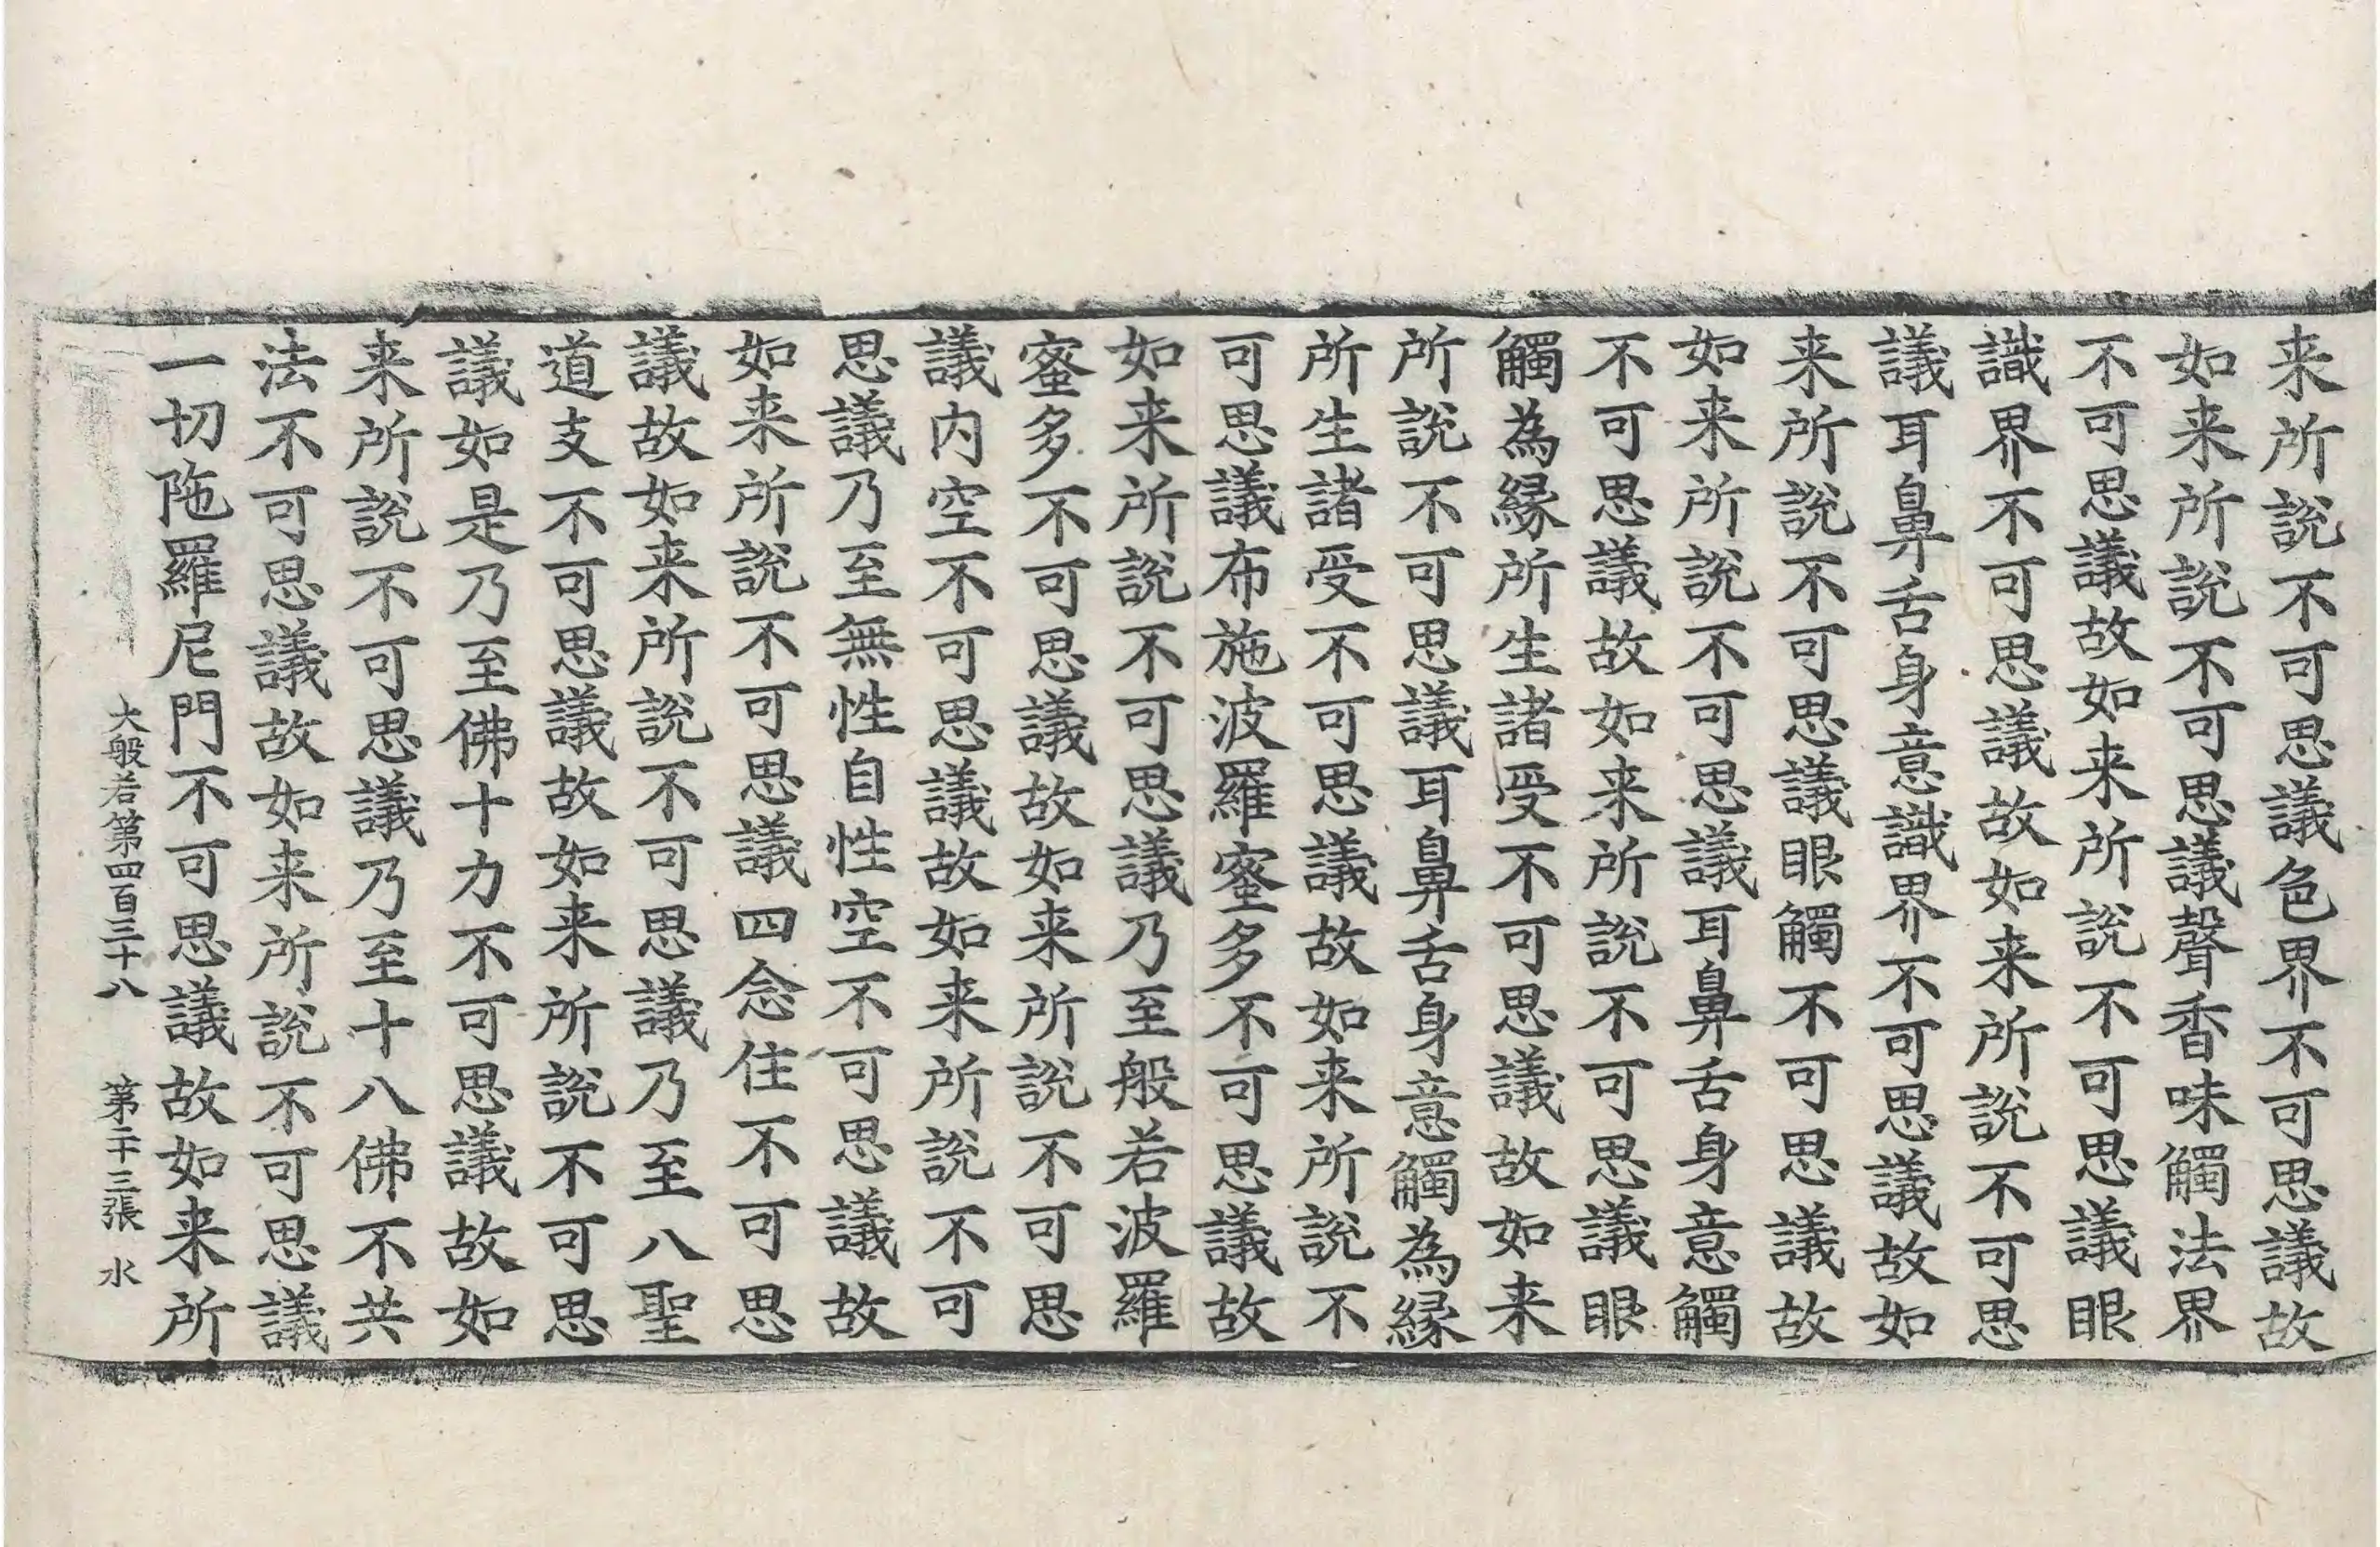 来所說不可思議色界不可思議故
如来所說不可思議聲香味觸法界
不可思議故如来所說不可思議眼
識界不可思議故如来所說不可思
議耳鼻舌身意識界不可思議故如
来所說不可思議眼觸不可思議故
如来所說不可思議耳鼻舌身意觸
不可思議故如来所說不可思議眼
觸為緣所生諸受不可思議故如来
所說不可思議耳鼻舌身意觸為緣
所生諸受不可思議故如来所說不
可思議布施波羅蜜多不可思議故
如来所說不可思議乃至般若波羅
蜜多不可思議故如来所說不可思
議内空不可思議故如来所說不可
思議乃至無性自性空不可思議故
如来所說不可思議四念住不可思
議故如来所說不可思議乃至八聖
道支不可思議故如来所說不可思
議如是乃至佛十力不可思議故如
来所說不可思議乃至十八佛不共
法不可思議故如来所說不可思議
一切陁羅尼門不可思議故如来所
大般若第四百三十八 第二十三張 水